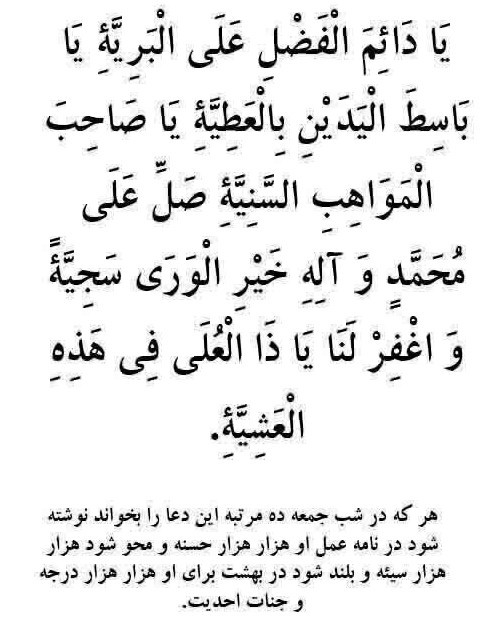 يَا دَائِمَ الْفَضْلِ عَلَى الْبَرِيَّةِ يَا
بَاسِطَ الْيَدَيْنِ بِالْعَطِيَّةِ يَا صَاحِبَ
الْمَوَاهِبِ السَّنِيَّةِ صَلِّ عَلَى
مُحَمَّدٍ وَ آلِهِ خَيْرِ الْوَرَى سَجِيَّةً
وَ اغْفِرْ لَنَا يَا ذَا الْعُلَى فِى هَذِهِ
الْعَشِيَّةِ.
هر که در شب جمعه ده مرتبه این دعا را بخواند نوشته
شود در نامه عمل او هزار هزار حسنه و محو شود هزار
هزار سیئه و بلند شود در بهشت برای او هزار هزار درجه
و جنات احدیت.